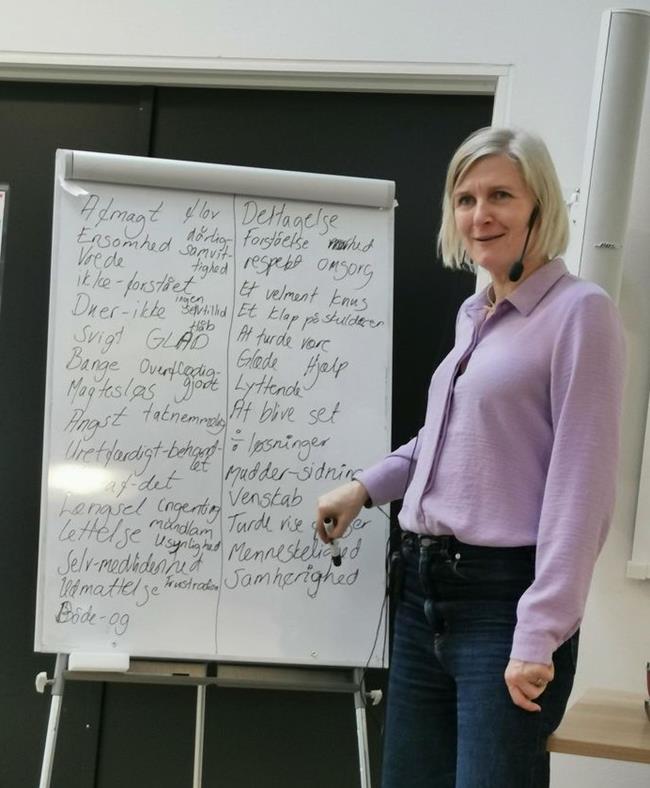 Afmagt flov
Ensomhed dårlig
Vrede samvit-
tighed
ikke-forstået
Duer-ikke ingen
selvtillid
Svigt GLAD Håb
Bange Overflødig-
Magtesløs gjort
Angst taknemmelig
Uretfærdigt-behand-
let
af-det
Længsel ingenting
Lettelse mundlam
usynlighed
Selv-medlidenhed
Udmattelse Frustration
Både-og
Deltagelse
Forståelse
respekt omsorg
Et velment knus
Et klap på skulderen
At turde være
Glæde Hjælp
Lyttende
At blive set
÷ løsninger
Mudder-sidning
Venskab
Turde vise
Menneskelighed
Samhørighed